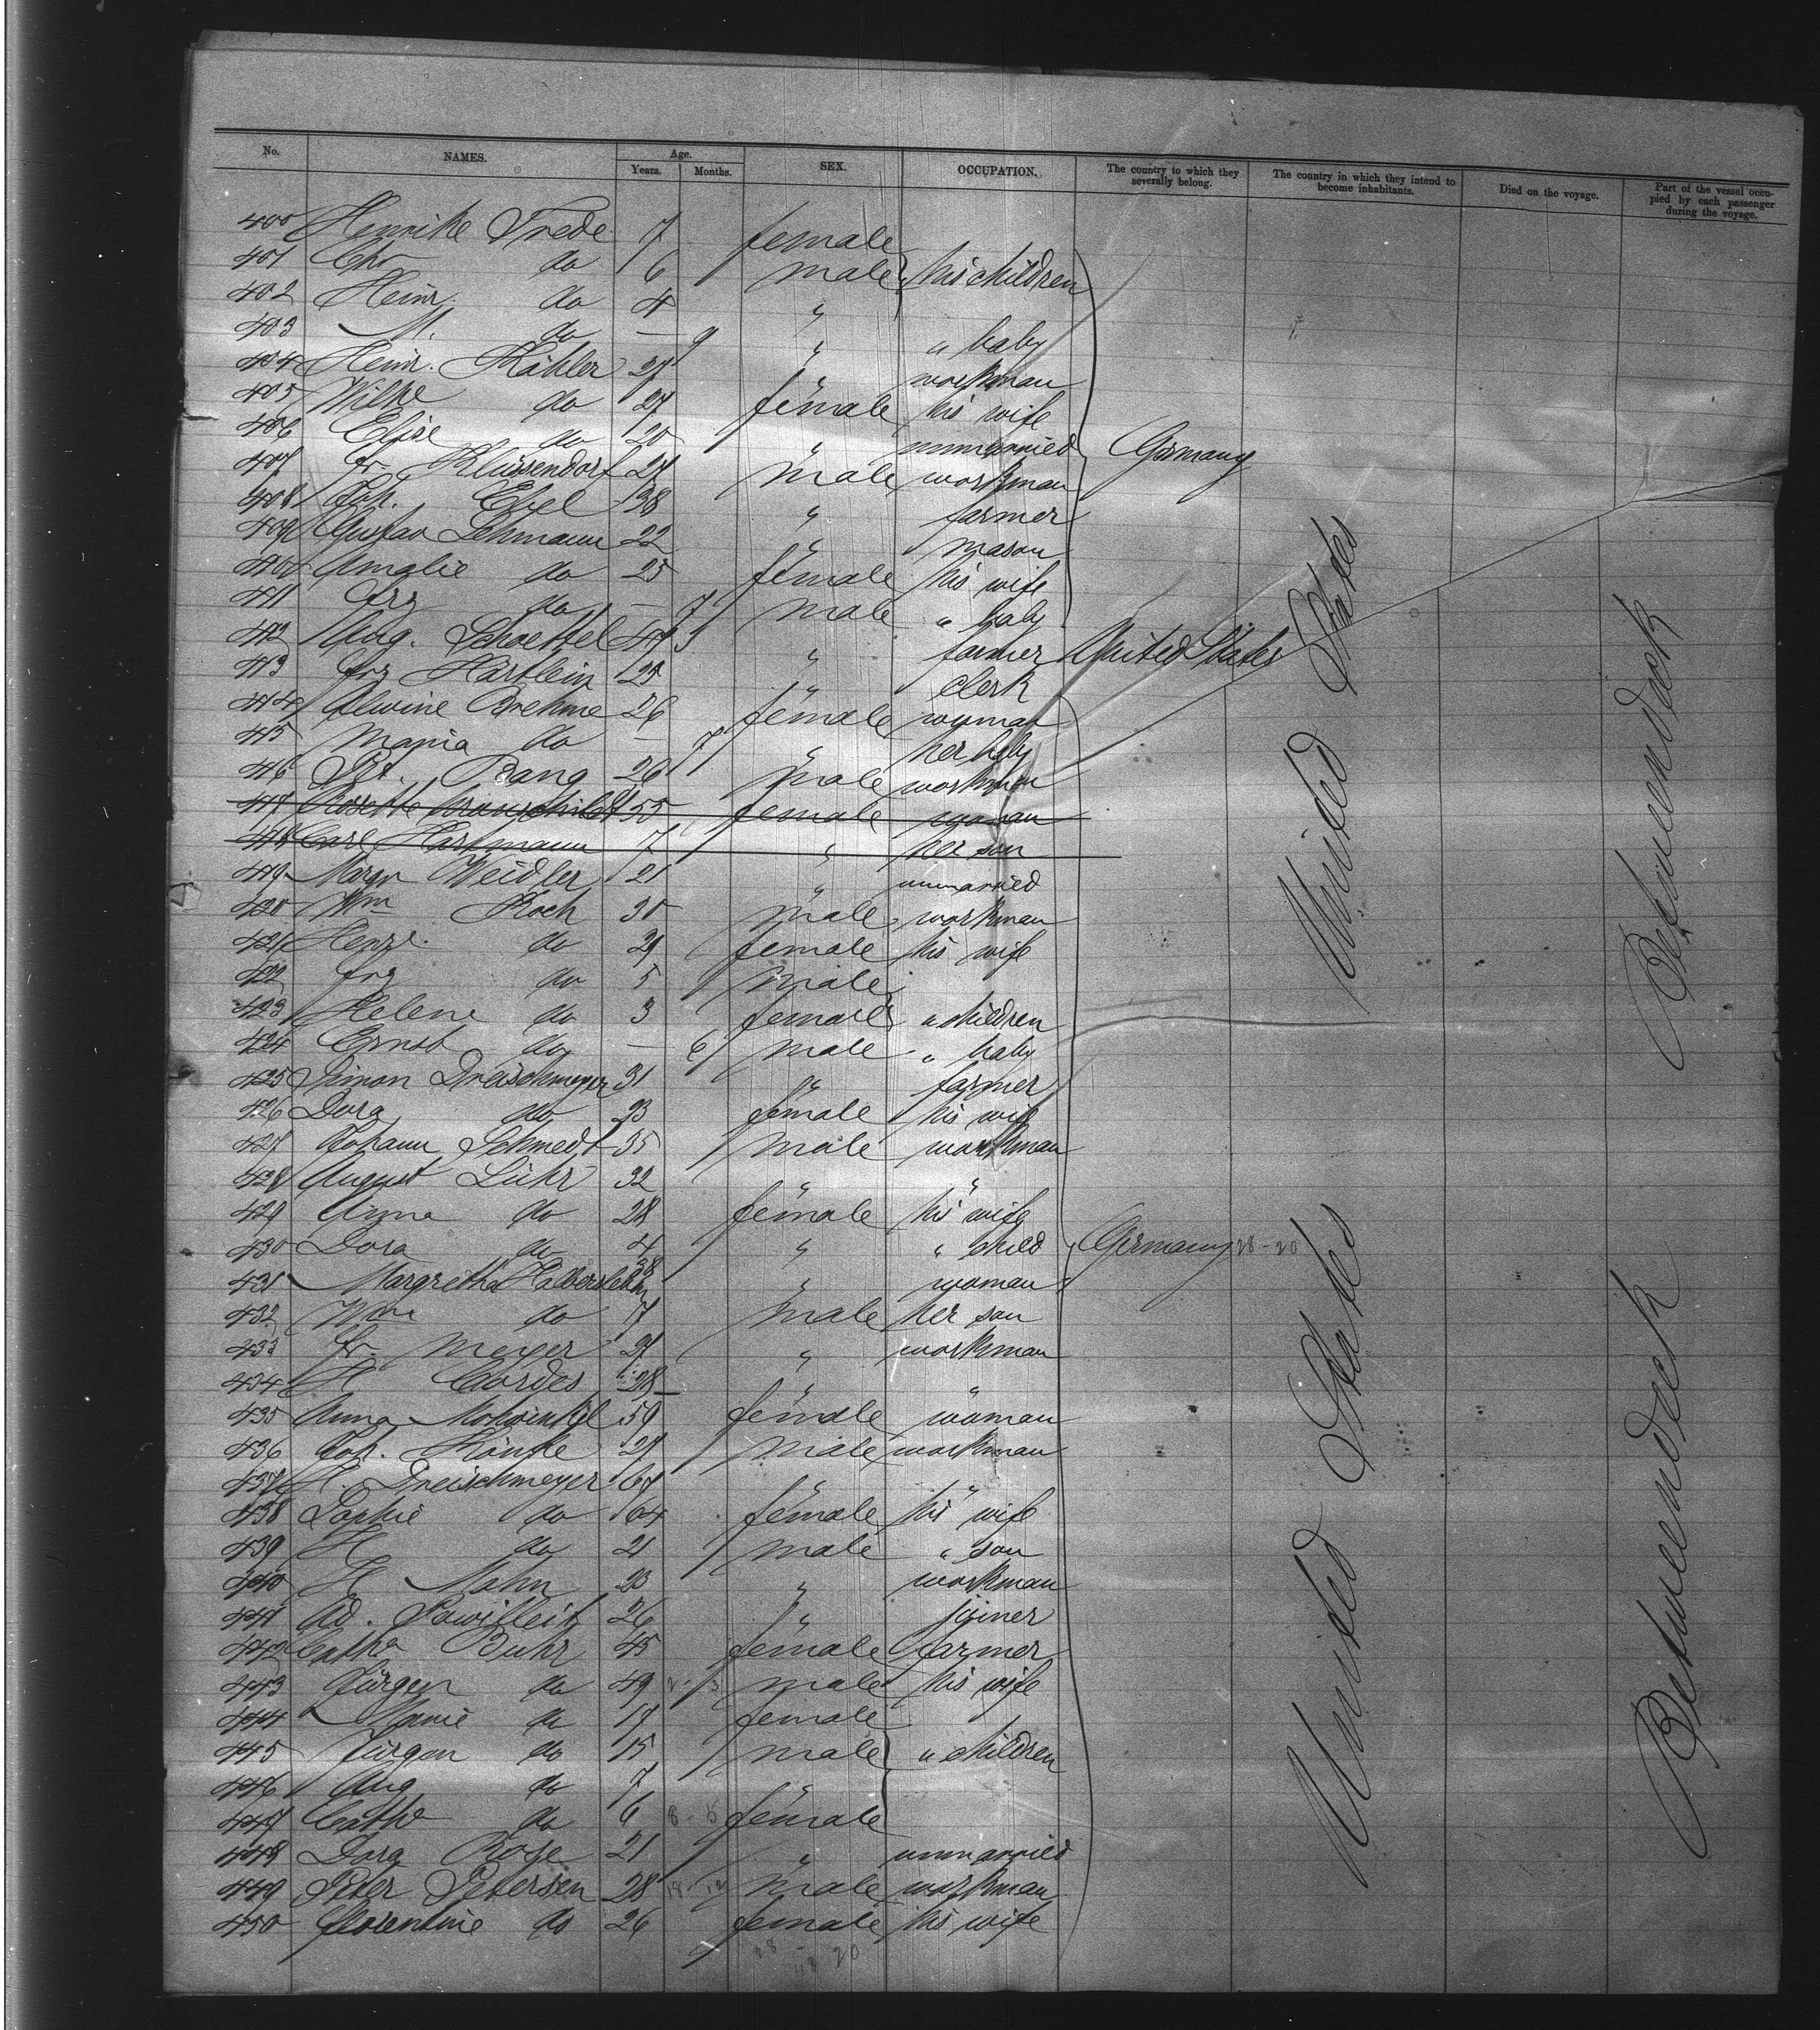 No. NAMES. Age. Years. Months. SEX. OCCUPATION. The country to which they severally belong. The country in which they intend to become inhabitants. Died on the voyage. Part of the vessel occupied by each passenger during the voyage.
400 Henrike Frede 7 female
401 Chr do 6 male his children
402 Heinr. do 4 "
403 M. do — 9 " " baby
404 Heinr. Kähler 27 " workman
405 Wilhe do 27 female his wife
406 Elise do 20 " unmarried Germany
407 Fr. Klüssendorf 27 male workman
408 Joh. Ebel 38 " farmer
409 Gustav Lehmann 22 " mason
410 Amalie do 25 female his wife
411 Frz do — 7 male " baby
412 Aug. Schoettel 49 " farmer United States
413 Frz Härtlein 25 " clerk
414 Alwine Brehme 26 female woman
415 Maria do — 7 " her baby
416 Bang 26 male workman
417 Rosette 55 female woman
418 Carl Hartmann 7 " her son
419 Margr Weidler 21 " unmarried
420 Wm Koch 30 male workman
421 Henr. do 29 female his wife
422 Frz do 5 male
423 Helene do 3 female " children
424 Ernst do — 6 male " baby
425 Simon Dreischmeyer 31 " farmer
426 Dora do 23 female his wife
427 Johann Schmedt 35 male workman
428 August Lühr 32 " "
429 Anna do 28 female his wife
430 Dora do 4 " " child Germany 28-20
431 Margretha 58 " woman
432 Wm do 7 male her son
433 Fr. Meyer 27 " workman
434 H Cordes 28 " "
435 Anna Mohwinkel 59 female woman
436 Joh. Köncke 27 male workman
437 H. Dreischmeyer 67 " "
438 Sophie do 64 female his wife
439 H do 21 male " son
440 H Mahn 23 " workman
441 Ad. Sawilleit 26 " joiner
442 Cathe Buhr 45 female farmer
443 Jürgen do 49 male his wife
444 Marie do 17 female
445 Jürgen do 15 male " children
446 Aug do 7 "
447 Cathe do 6 female
448 Dora Rose 21 " unmarried
449 Peter Petersen 28 male workman
450 Florentine do 26 female his wife
United States
United States
Betweendeck
Betweendeck